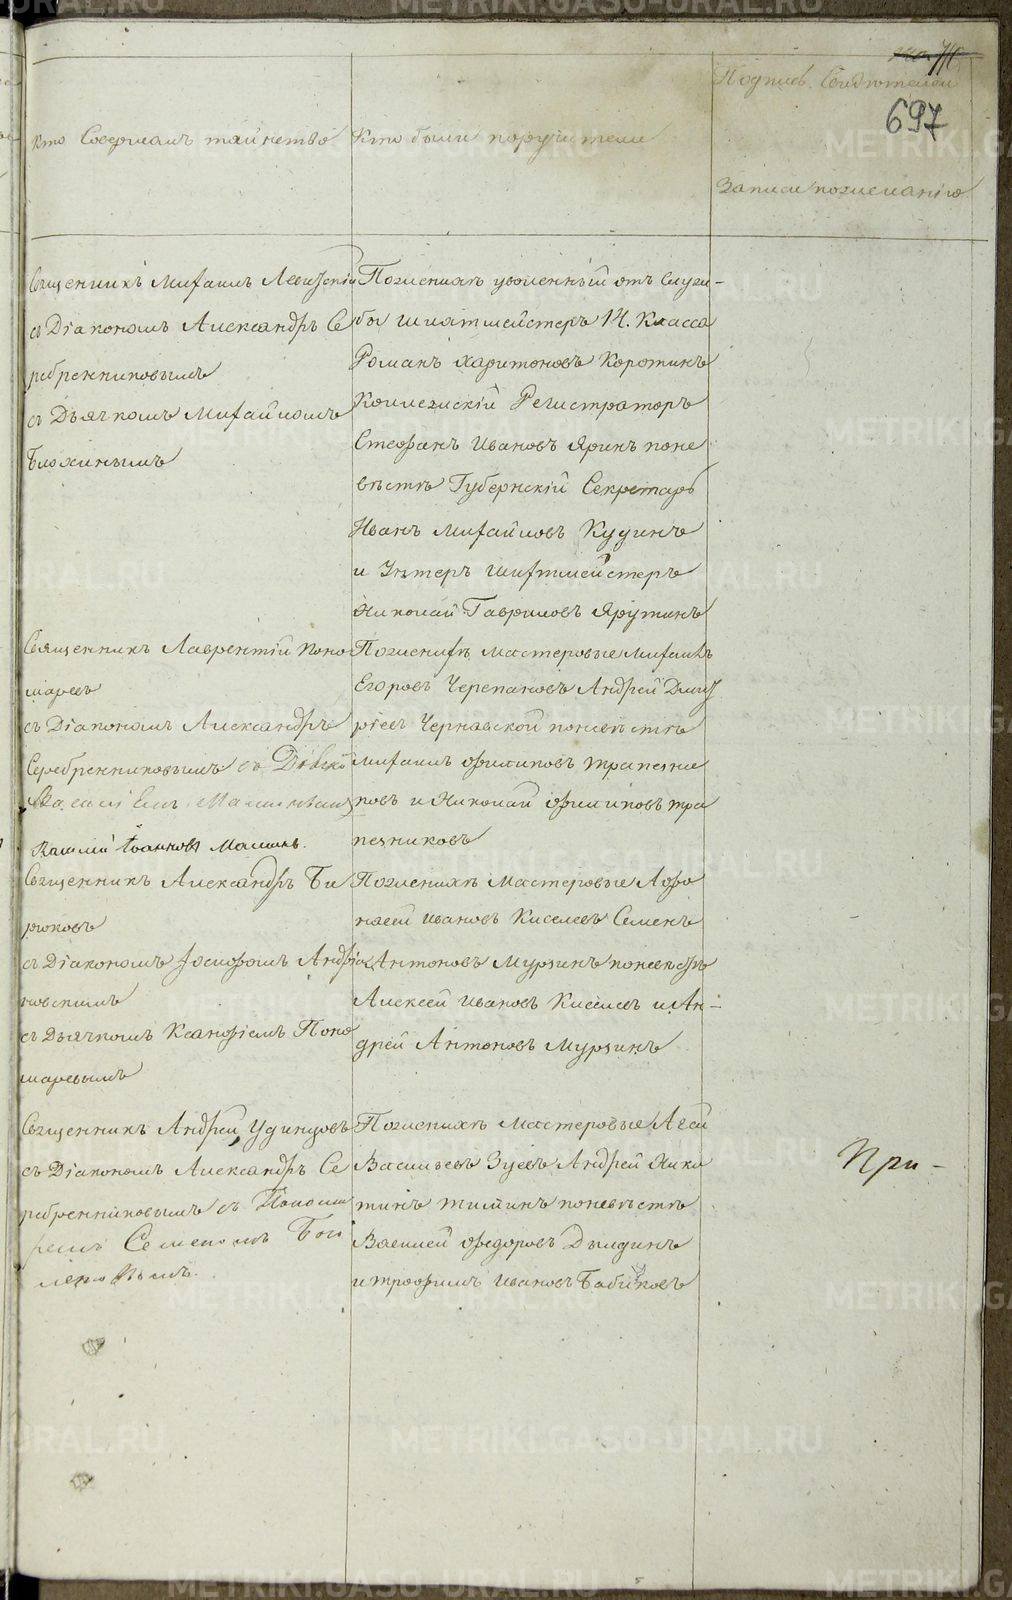 710
697
Подпись Свидетелей
Записи по желанію
Кто Совершалъ таинство
Кто были поручители
Священникъ Михаилъ Левитскій
съ Діакономъ Александръ Се
ребренниковымъ
съ Дьячкомъ Михайломъ
Блохинымъ
По женихѣ уволенный отъ служ-
бы шихтмейстеръ 14. Класса
Романъ Харитоновъ Коротинъ
Коллежскій Регистраторъ
Стефанъ Ивановъ Яринъ по не
вѣстѣ Губернскій Секретарь
Иванъ Михайловъ Кудинъ
и Унтеръ шихтмейстеръ
Николай Гавриловъ Ярутинъ
Священникъ Лаврентій Поно
маревъ
съ Діакономъ Александръ
Серебренниковымъ съ
Василій Іоанновъ
По женихѣ мастеровые Михаилъ
Егоровъ Черепановъ Андрей Дмит
ріевъ Чернавской по невѣстѣ
Михаилъ Филиповъ трапезни
ковъ и Николай Филиповъ тра
пезниковъ
Священникъ Александръ Би
рюковъ
съ Діакономъ Іосифомъ Андріа
новскимъ
съ Дьячкомъ Ксанфіемъ Поно
маревымъ
По женихѣ Мастеровые Афо
насей Ивановъ Киселевъ Семенъ
Антоновъ Мурзинъ по невѣстѣ
Алексей Ивановъ Киселевъ и Ан-
дрей Антоновъ Мурзинъ
Священникъ Андрей Удинцовъ
съ Діакономъ Александръ Се
ребренниковымъ съ Понома
ремъ Семеномъ
По женихѣ Мастеровые
Васильевъ Зуевъ Андрей Ники
тинъ по невѣстѣ
Василей Федоровъ Дылдинъ
и Трофимъ Ивановъ Бабиновъ
При-
METRIKI.GASO-URAL.RU